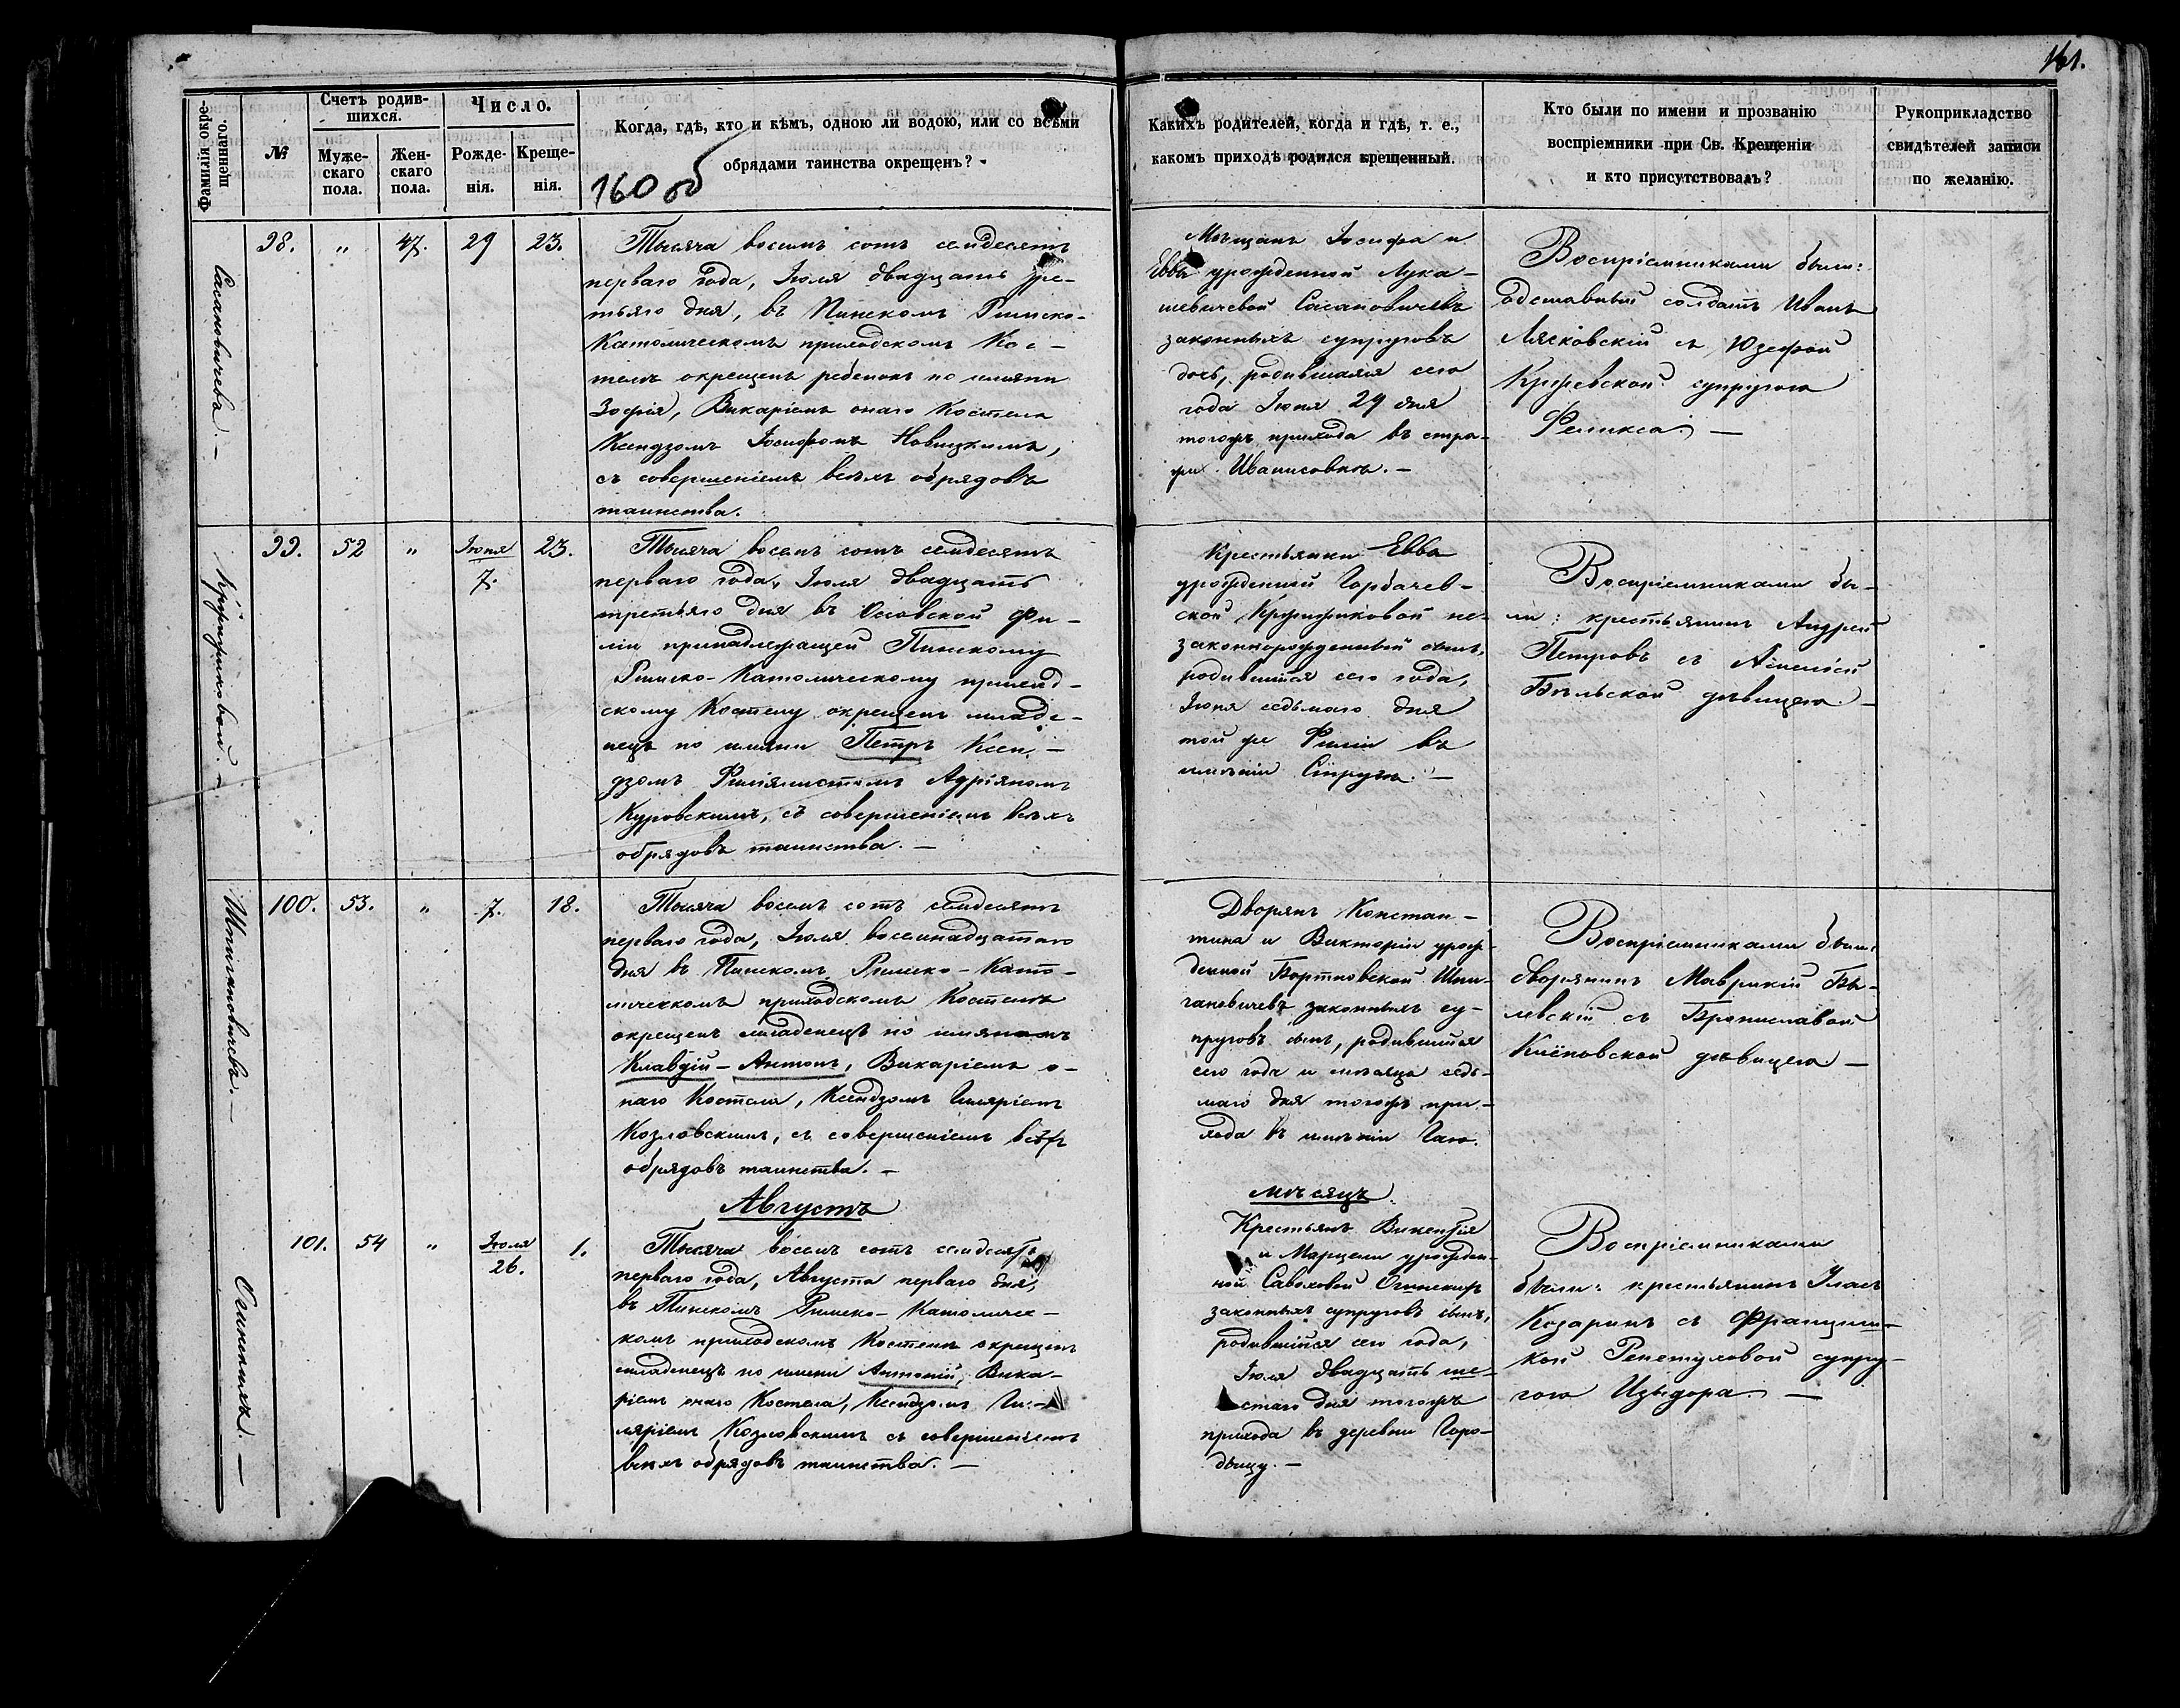 161.
Фамилія окре-
щеннаго.
№
Счетъ родив-
шихся.
Муже-
скаго
пола.
Жен-
скаго
пола.
Число.
Рожде-
нія.
Креще-
нія.
Когда, гдѣ, кто и кѣмъ, одною ли водою, или со всѣми
обрядами таинства окрещенъ?
160 об
Какихъ родителей, когда и гдѣ, т. е.,
какомъ приходѣ родился крещенный.
Кто были по имени и прозванію
воспріемники при Св. Крещеніи
и кто присутствовалъ?
Рукоприкладство
свидѣтелей записи
по желанію.
Сасановичева. —
98. „ 47. 29 23.
Тысяча восемъ сотъ семдесятъ
перваго года, Іюля двадцать тре-
тьяго дня, въ Пинскомъ Римско-
Католическомъ приходскомъ Кос-
телѣ окрещенъ ребенокъ по имяни
Зофія, Викаріемъ онаго Костела
Ксендзомъ Іосифомъ Новицкимъ,
съ совершеніемъ всѣхъ обрядовъ
таинства.
Мѣщанъ Іосифа и
Еввы урожденной Лука-
шевичевой Сасановичевъ
законныхъ супруговъ
дочь, родившаяся сего
года Іюня 29 дня
тогожъ прихода въ стра-
жи Иванисовкѣ. —
Воспріемниками были:
отставный солдатъ Иванъ
Лясковскій съ Юзефой
супругою
Феликса. —
99. 52 „ Іюня 7. 23.
Тысяча восемъ сотъ семдесятъ
перваго года, Іюля двадцать
третьяго дня въ Осовской Фи-
ліи принадлежащей Пинскому
Римско-Католическому приход-
скому Костелу окрещенъ младе-
нецъ по имяни Петръ Ксен-
дзомъ Филіялистомъ Адріяномъ
Куровскимъ, съ совершеніемъ всѣхъ
обрядовъ таинства. —
Крестьянки Еввы
урожденной Горбачев-
ской не-
законнорожденный сынъ,
родившійся сего года,
Іюня седьмаго дня
той же Филіи въ
имѣніи Струга. —
Воспріемниками бы-
ли: крестьянинъ Андрей
Петровъ съ
Бѣльской дѣвицею. —
Шпигановичевъ. —
100. 53. „ 7. 18.
Тысяча восемъ сотъ семдесятъ
перваго года, Іюля восемнадцатаго
дня въ Пинскомъ Римско-Като-
лическомъ приходскомъ Костелѣ
окрещенъ младенецъ по имянамъ
Клавдій-Антонъ, Викаріемъ о-
наго Костела, Ксендзомъ Гиляріемъ
Козловскимъ, съ совершеніемъ всѣхъ
обрядовъ таинства. —
Дворянъ Констан-
тина и Викторіи урож-
денной Бортновской Шпи-
гановичевъ законныхъ су-
пруговъ сынъ, родившійся
сего года и мѣсяца седь-
маго дня тогожъ при-
хода въ имѣніи Гаю.
Воспріемниками были:
дворянинъ Маврикій Бы-
левскій съ Брониславой
дѣвицею. —
Августъ
мѣсяцъ.
Огинскихъ. —
101. 54 „ Іюля 26. 1.
Тысяча восемъ сотъ семдесятъ
перваго года, Августа перваго дня,
въ Пинскомъ Римско-Католичес-
комъ приходскомъ Костелѣ окрещенъ
младенецъ по имени Антоній, Вика-
ріемъ онаго Костела, Ксендзомъ Ги-
ляріемъ Козловскимъ съ совершеніемъ
всѣхъ обрядовъ таинства. —
Крестьянъ Викентія
и Марцели урожден-
ной Саволовой Огинскихъ
законныхъ супруговъ сынъ,
родившійся сего года,
Іюля двадцать ше-
стаго дня тогожъ
прихода въ деревни Горо-
дищу. —
Воспріемниками
были: крестьянинъ Уласъ
Козаринъ съ Францишк-
кой Репетуховой супру-
гою Изыдора. —